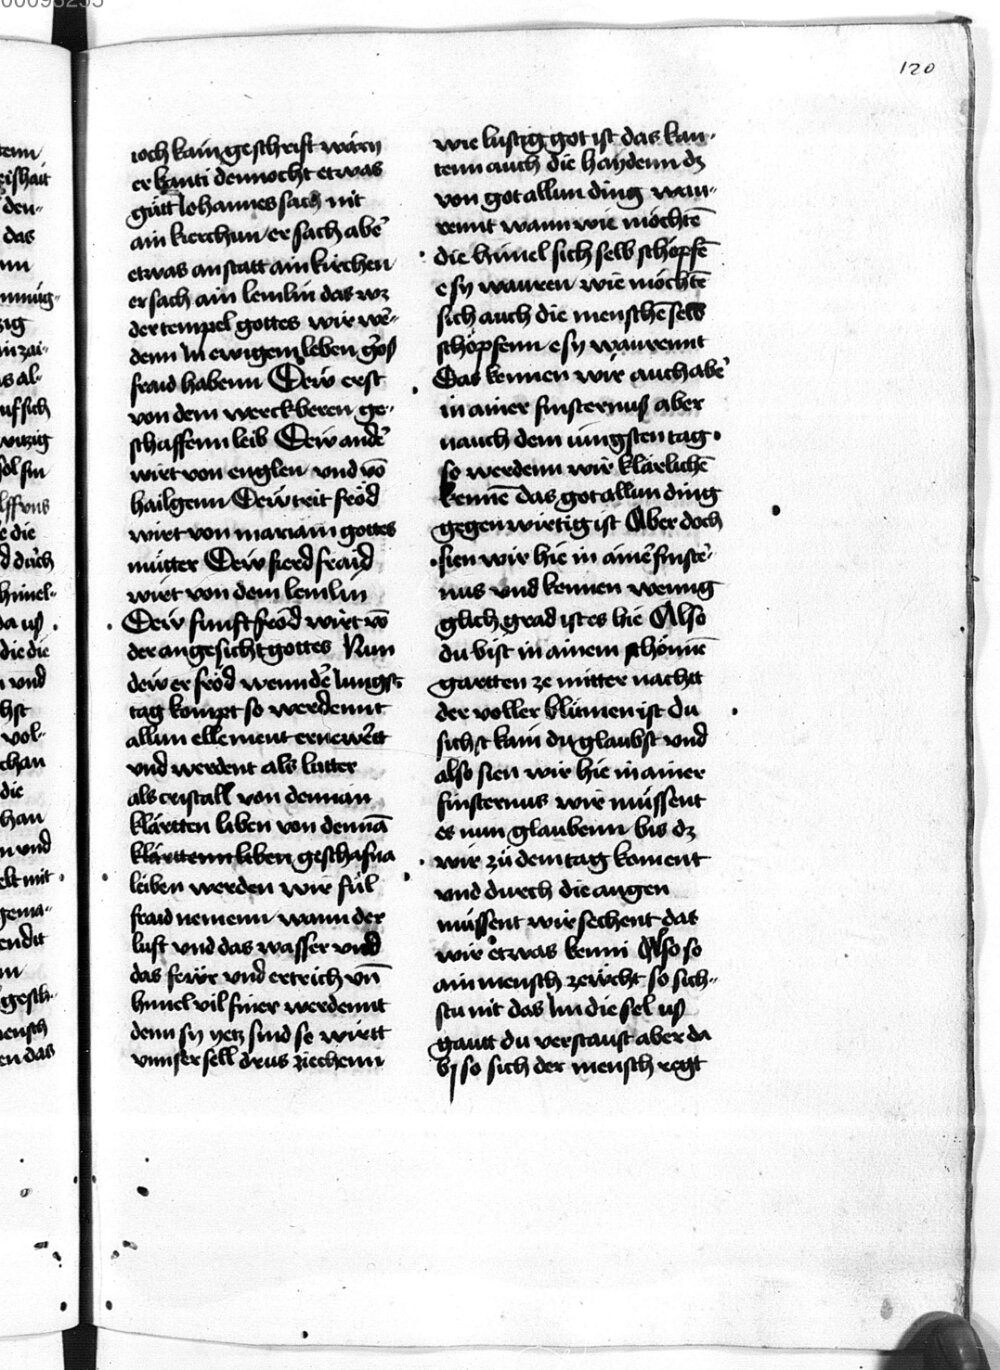 120
ioch kain geschrift wärn
er kanti dennocht etwas
gütt Iohannes sach nit
ain kirchun er sach abe᷑
etwas anstatt ain kirchen
er sach ain lemlin das wz
der tempel gottes wir we᷑-
denn In ewigem leben gros
fraid habenn Dew erst
von dem werckberen ge-
schaffenn leib Dew ande᷑
wirt von englen vnd vō
hailgenn Dew trit fröd
wirt von mariam gottes
mütter Dew fierd fraid
wirt von dem lemlin
Dew funft fröd wirt vō
der angesicht gottes Nun
dew er fröd wenn de᷑ Iungst
tag kompt so werdennt
allun ellement ernewe᷑tt
vnd werdent als lutter
als cristall von dennan
klärtten liben von dennā
klärttenn liben geschafna
leiben werden wir fül
fraid nemenn wann der
luft vnd das wasser vnd
das fewr vnd ertrich vn̄
himel vil finer werdennt
denn sy yetz sind so wirtt
vnnser sell drus ziechenn
wie lustig got ist das kan-
tenn auch die haydenn dz
von got allun ding wau-
rennt wann wie möchtē
die himel sich selb schöpfē
e sy wauren wie möchtē
sich auch die menschē selb
schöpfenn e sy waurennt
Das kennen wir auch abe᷑
in ainer finsternuß aber
nauch dem iungsten tag
so werdenn wir klärlichē
kennē das got allun ding
gegenwirtig ist Aber doch
sien wir hie in aine᷑ finste᷑-
nus vnd kennen wenng
glich grad ist es hie Also
du bist in ainem schönnē
gartten ze mitter nachtt
der voller blümen ist du
sichst kain du glaubst vnd
also sien wir hie in ainer
finsternus wir müssent
es nun glaubenn bis dz
wir zü dem tag koment
vnd durch die augen
müssent wir sechent das
wir etwas kenni Also so
ain mensch so sich-
stu nit das Im die sel uß
gautt du verstaust aber da
by so sich der mensch regt